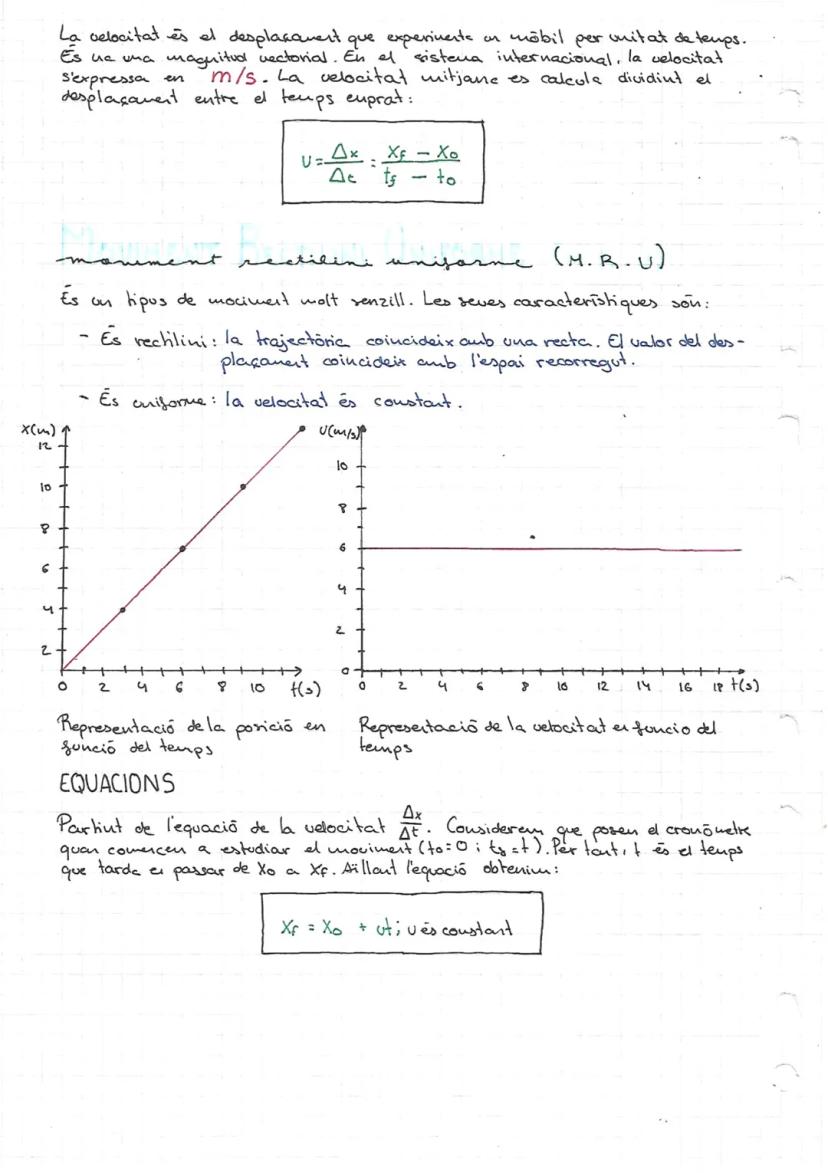 La velocitat és el desplaçament que experimenta un mòbil per unitat de temps.
És una una magnitud vectorial. En el sistema internacional, la velocitat
s'expressa en m/s. La velocitat mitjana es calcula dividint el
desplaçament entre el temps emprat:
v = Δx / Δt = Xf - X0 / tf - t0
moviment rectilini uniforme (M.R.U)
És un tipus de moviment molt senzill. Les seves característiques són:
- És rectilini: la trajectòria coincideix amb una recta. El valor del des-
plaçament coincideix amb l'espai recorregut.
- És uniforme: la velocitat és constant.
X(m) 12 10 8 6 4 2
0 2 4 6 8 10 t(s)
v(m/s) 10 8 6 4 2 0
0 2 4 6 8 10 12 14 16 18 t(s)
Representació de la posició en
funció del temps
Representació de la velocitat en funcio del
temps
EQUACIONS
Partint de l'equació de la velocitat Δx/Δt. Considerem que posen el cronòmetre
quan comencen a estudiar el moviment (t0=0 i tf=t). Per tant, t és el temps
que tarda en passar de X0 a Xf. Aïllant l'equació obtenim:
Xf = X0 + vt; v és constant